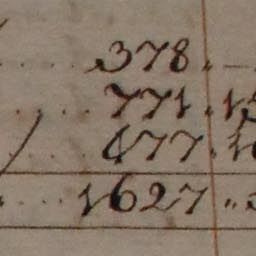 .... 378 . —
.... 771 .
.. 477 .
.... 1627 ..